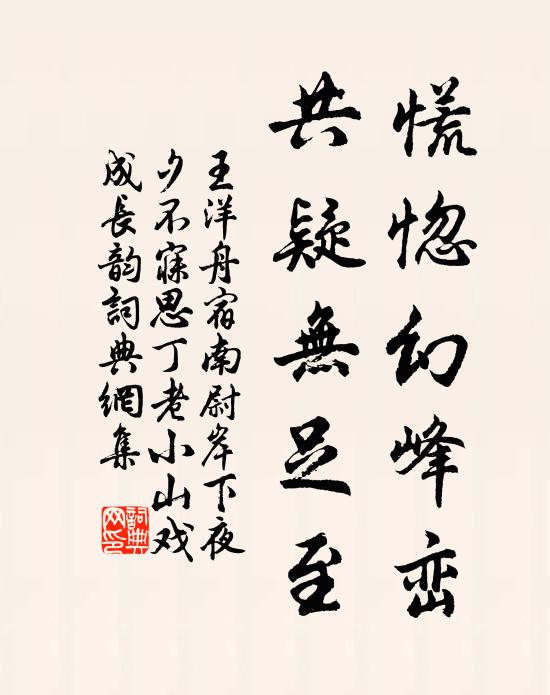 慌惚幻峰峦
共疑無足至
王洋舟宿南尉岸下夜
夕不寐思丁老小山戏
成長韵詞典網集
詞典
网印